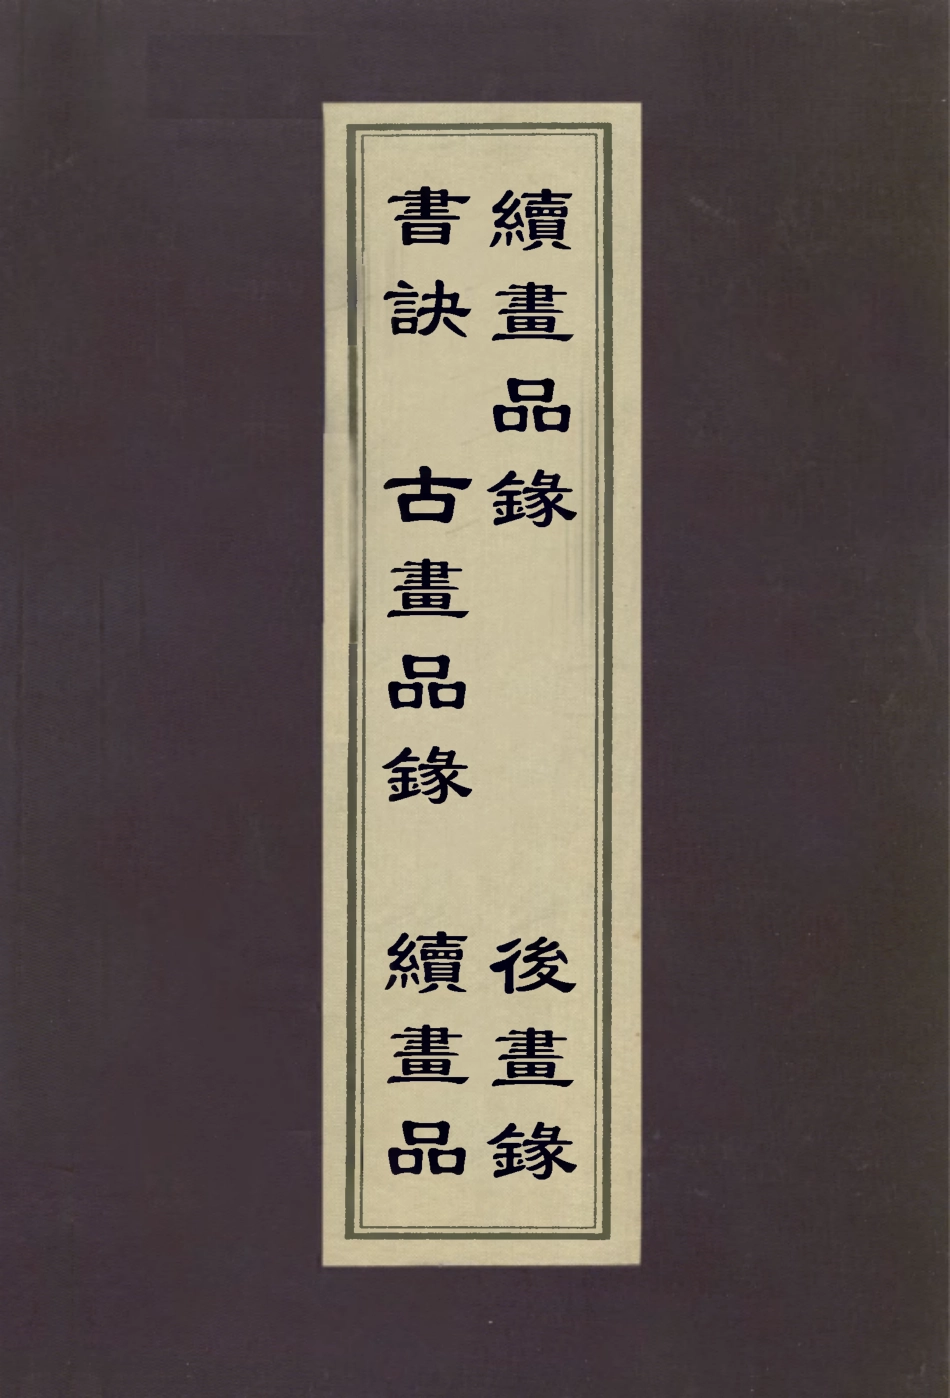 續畫品錄 後畫錄
書訣 古畫品錄 續畫品